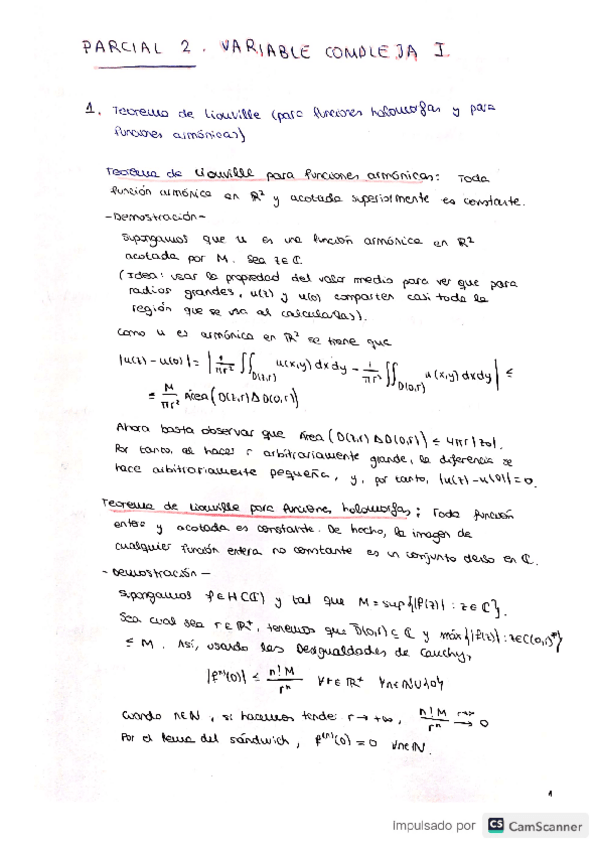 PARCIAL 2. VARIABLE COMPLEJA I
1. Teorema de Liouville (para funciones holomorfas y para
funciones armónicas)
Teorema de Liouville para funciones armónicas: Toda
función armónica en ℝ² y acotada superiormente es constante.
-Demostración-
Supongamos que u es una función armónica en ℝ²
acotada por M. Sea z∈ℂ.
(Idea: usar la propiedad del valor medio para ver que para
radios grandes, u(z) y u(0) comparten casi toda la
región que se usa al calcularlas).
Como u es armónica en ℝ² se tiene que
|u(z) - u(0)| = | 1/πr² ∬_D(z,r) u(x,y) dxdy - 1/πr² ∬_D(0,r) u(x,y) dxdy | ≤
≤ M/πr² Área(D(z,r) Δ D(0,r))
Ahora basta observar que Área(D(z,r) Δ D(0,r)) ≤ 4πr|z|.
Por tanto, al hacer r arbitrariamente grande, la diferencia se
hace arbitrariamente pequeña, y, por tanto, |u(z) - u(0)| = 0.
Teorema de Liouville para funciones holomorfas: Toda función
entera y acotada es constante. De hecho, la imagen de
cualquier función entera no constante es un conjunto denso en ℂ.
- Demostración -
Supongamos f∈H(ℂ) y tal que M = sup{|f(z)| : z∈ℂ}.
Sea cual sea r∈ℝ⁺, tenemos que D̄(0,r) ⊆ ℂ y máx{|f(z)| : z∈C(0,r)*}
≤ M. Así, usando las Desigualdades de Cauchy,
|fⁿ(0)| ≤ n! M / rⁿ ∀r∈ℝ⁺ ∀n∈ℕ∪{0}
Cuando n∈ℕ, si hacemos tender r → +∞, n! M / rⁿ → 0
Por el lema del sándwich, f⁽ⁿ⁾(0) = 0 ∀n∈ℕ.
1
Impulsado por CS CamScanner